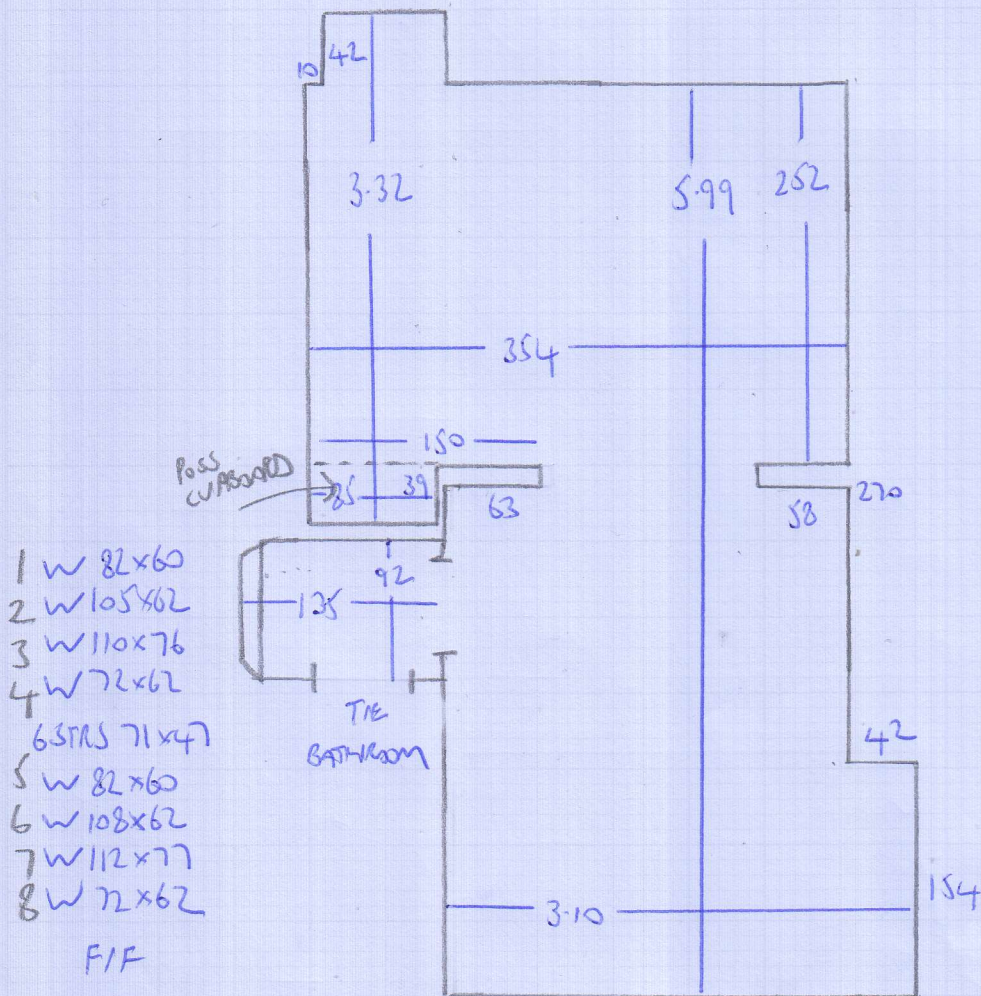 42
10
3.32
5.99
252
354
150
POSS
CUPBOARD
85
39
63
58
270
92
135
TIE
BATHROOM
42
154
3.10
1 W 82x60
2 W 105x62
3 W 110x76
4 W 72x62
6 STRS 71x47
5 W 82x60
6 W 108x62
7 W 112x77
8 W 72x62
F/F